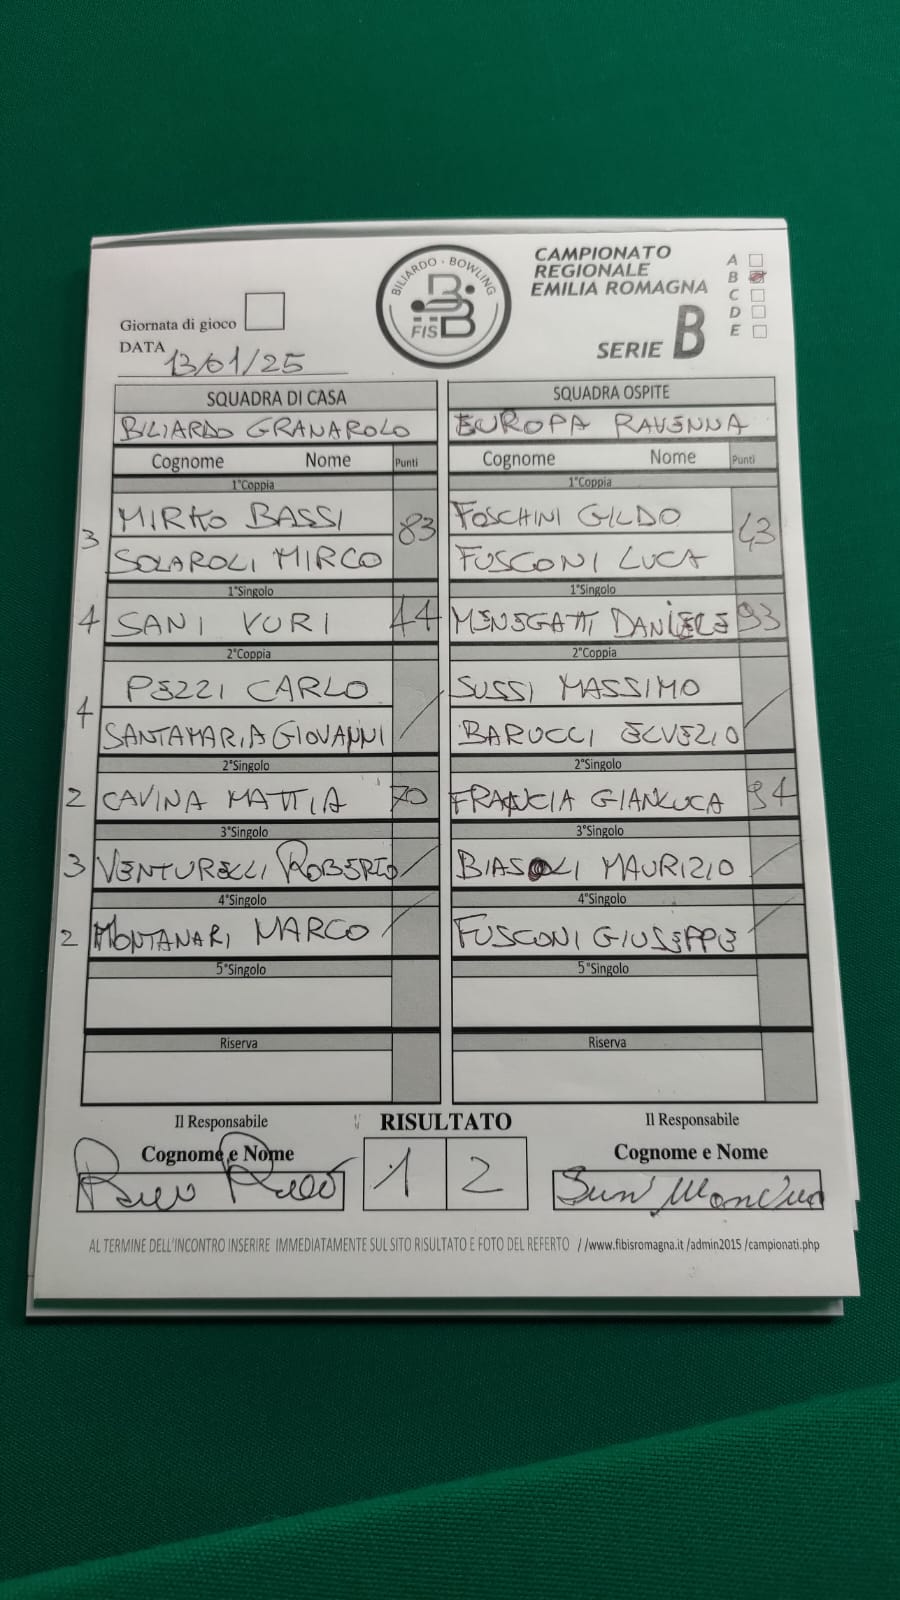 BILIARDO · BOWLING
FISBB
CAMPIONATO
REGIONALE
EMILIA ROMAGNA
SERIE B
A
B
C
D
E
Giornata di gioco
DATA 13/01/25
SQUADRA DI CASA
BILIARDO GRANAROLO
Cognome Nome Punti
1°Coppia
3 MIRKO BASSI 83
SOLAROLI MIRCO
1°Singolo
4 SANI YURI 44
2°Coppia
PEZZI CARLO
4 SANTAMARIA GIOVANNI /
2°Singolo
2 CAVINA MATTIA 70
3°Singolo
3 VENTURELLI ROBERTO /
4°Singolo
2 MONTANARI MARCO /
5°Singolo
Riserva
SQUADRA OSPITE
EUROPA RAVENNA
Cognome Nome Punti
1°Coppia
FOSCHINI GILDO 43
FUSCONI LUCA
1°Singolo
MENEGATTI DANIELE 93
2°Coppia
SUSSI MASSIMO
BARUCCI ELVEZIO /
2°Singolo
FRANCIA GIANLUCA 94
3°Singolo
BIASOLI MAURIZIO /
4°Singolo
FUSCONI GIUSEPPE /
5°Singolo
Riserva
Il Responsabile
Cognome e Nome
RISULTATO
1 2
Il Responsabile
Cognome e Nome
AL TERMINE DELL'INCONTRO INSERIRE IMMEDIATAMENTE SUL SITO RISULTATO E FOTO DEL REFERTO //www.fibisromagna.it /admin2015 /campionati.php